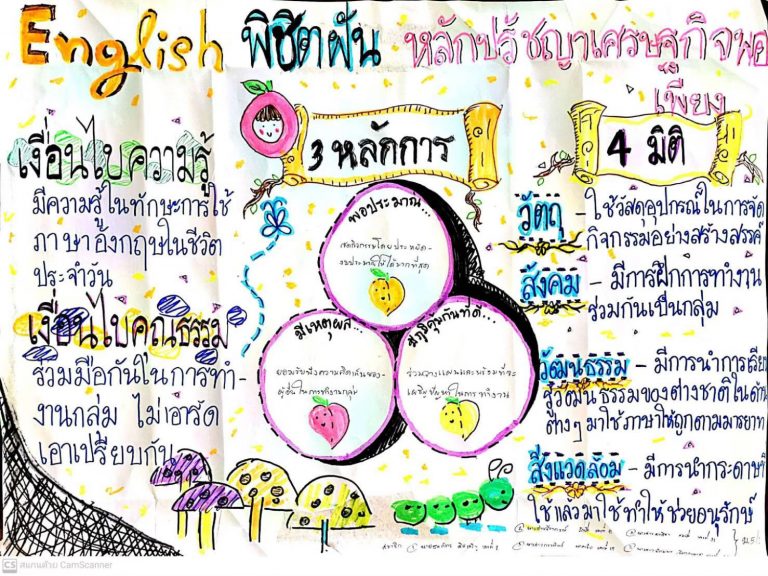 English พิชิตฝัน หลักปรัชญาเศรษฐกิจพอ
เพียง
3 หลักการ
4 มิติ
เงื่อนไขความรู้
มีความรู้ในทักษะการใช้
ภาษาอังกฤษในชีวิต
ประจำวัน
เงื่อนไขคุณธรรม
ร่วมมือกันในการทำ-
งานกลุ่ม ไม่เอารัด
เอาเปรียบกัน
พอประมาณ...
งบประมาณให้ได้มากที่สุด
มีเหตุผล...
ยอมรับฟังความคิดเห็นของ-
ผู้อื่นในการทำงานกลุ่ม
ภูมิคุ้มกันที่ดี...
ร่วมวางแผนและพร้อมที่จะ
เผชิญปัญหาในการทำงาน
วัตถุ - ใช้วัสดุอุปกรณ์ในการจัด
กิจกรรมอย่างสร้างสรรค์
สังคม - มีการฝึกการทำงาน
ร่วมกันเป็นกลุ่ม
วัฒนธรรม - มีการนำการเรีย
รู้วัฒนธรรมของต่างชาติในด้าน
ต่างๆ มาใช้ภาษาให้ถูกตามมารยาท
สิ่งแวดล้อม - มีการนำกระดาษที่
ใช้แล้วมาใช้ทำให้ช่วยอนุรักษ์
สมาชิก
CS สแกนด้วย CamScanner